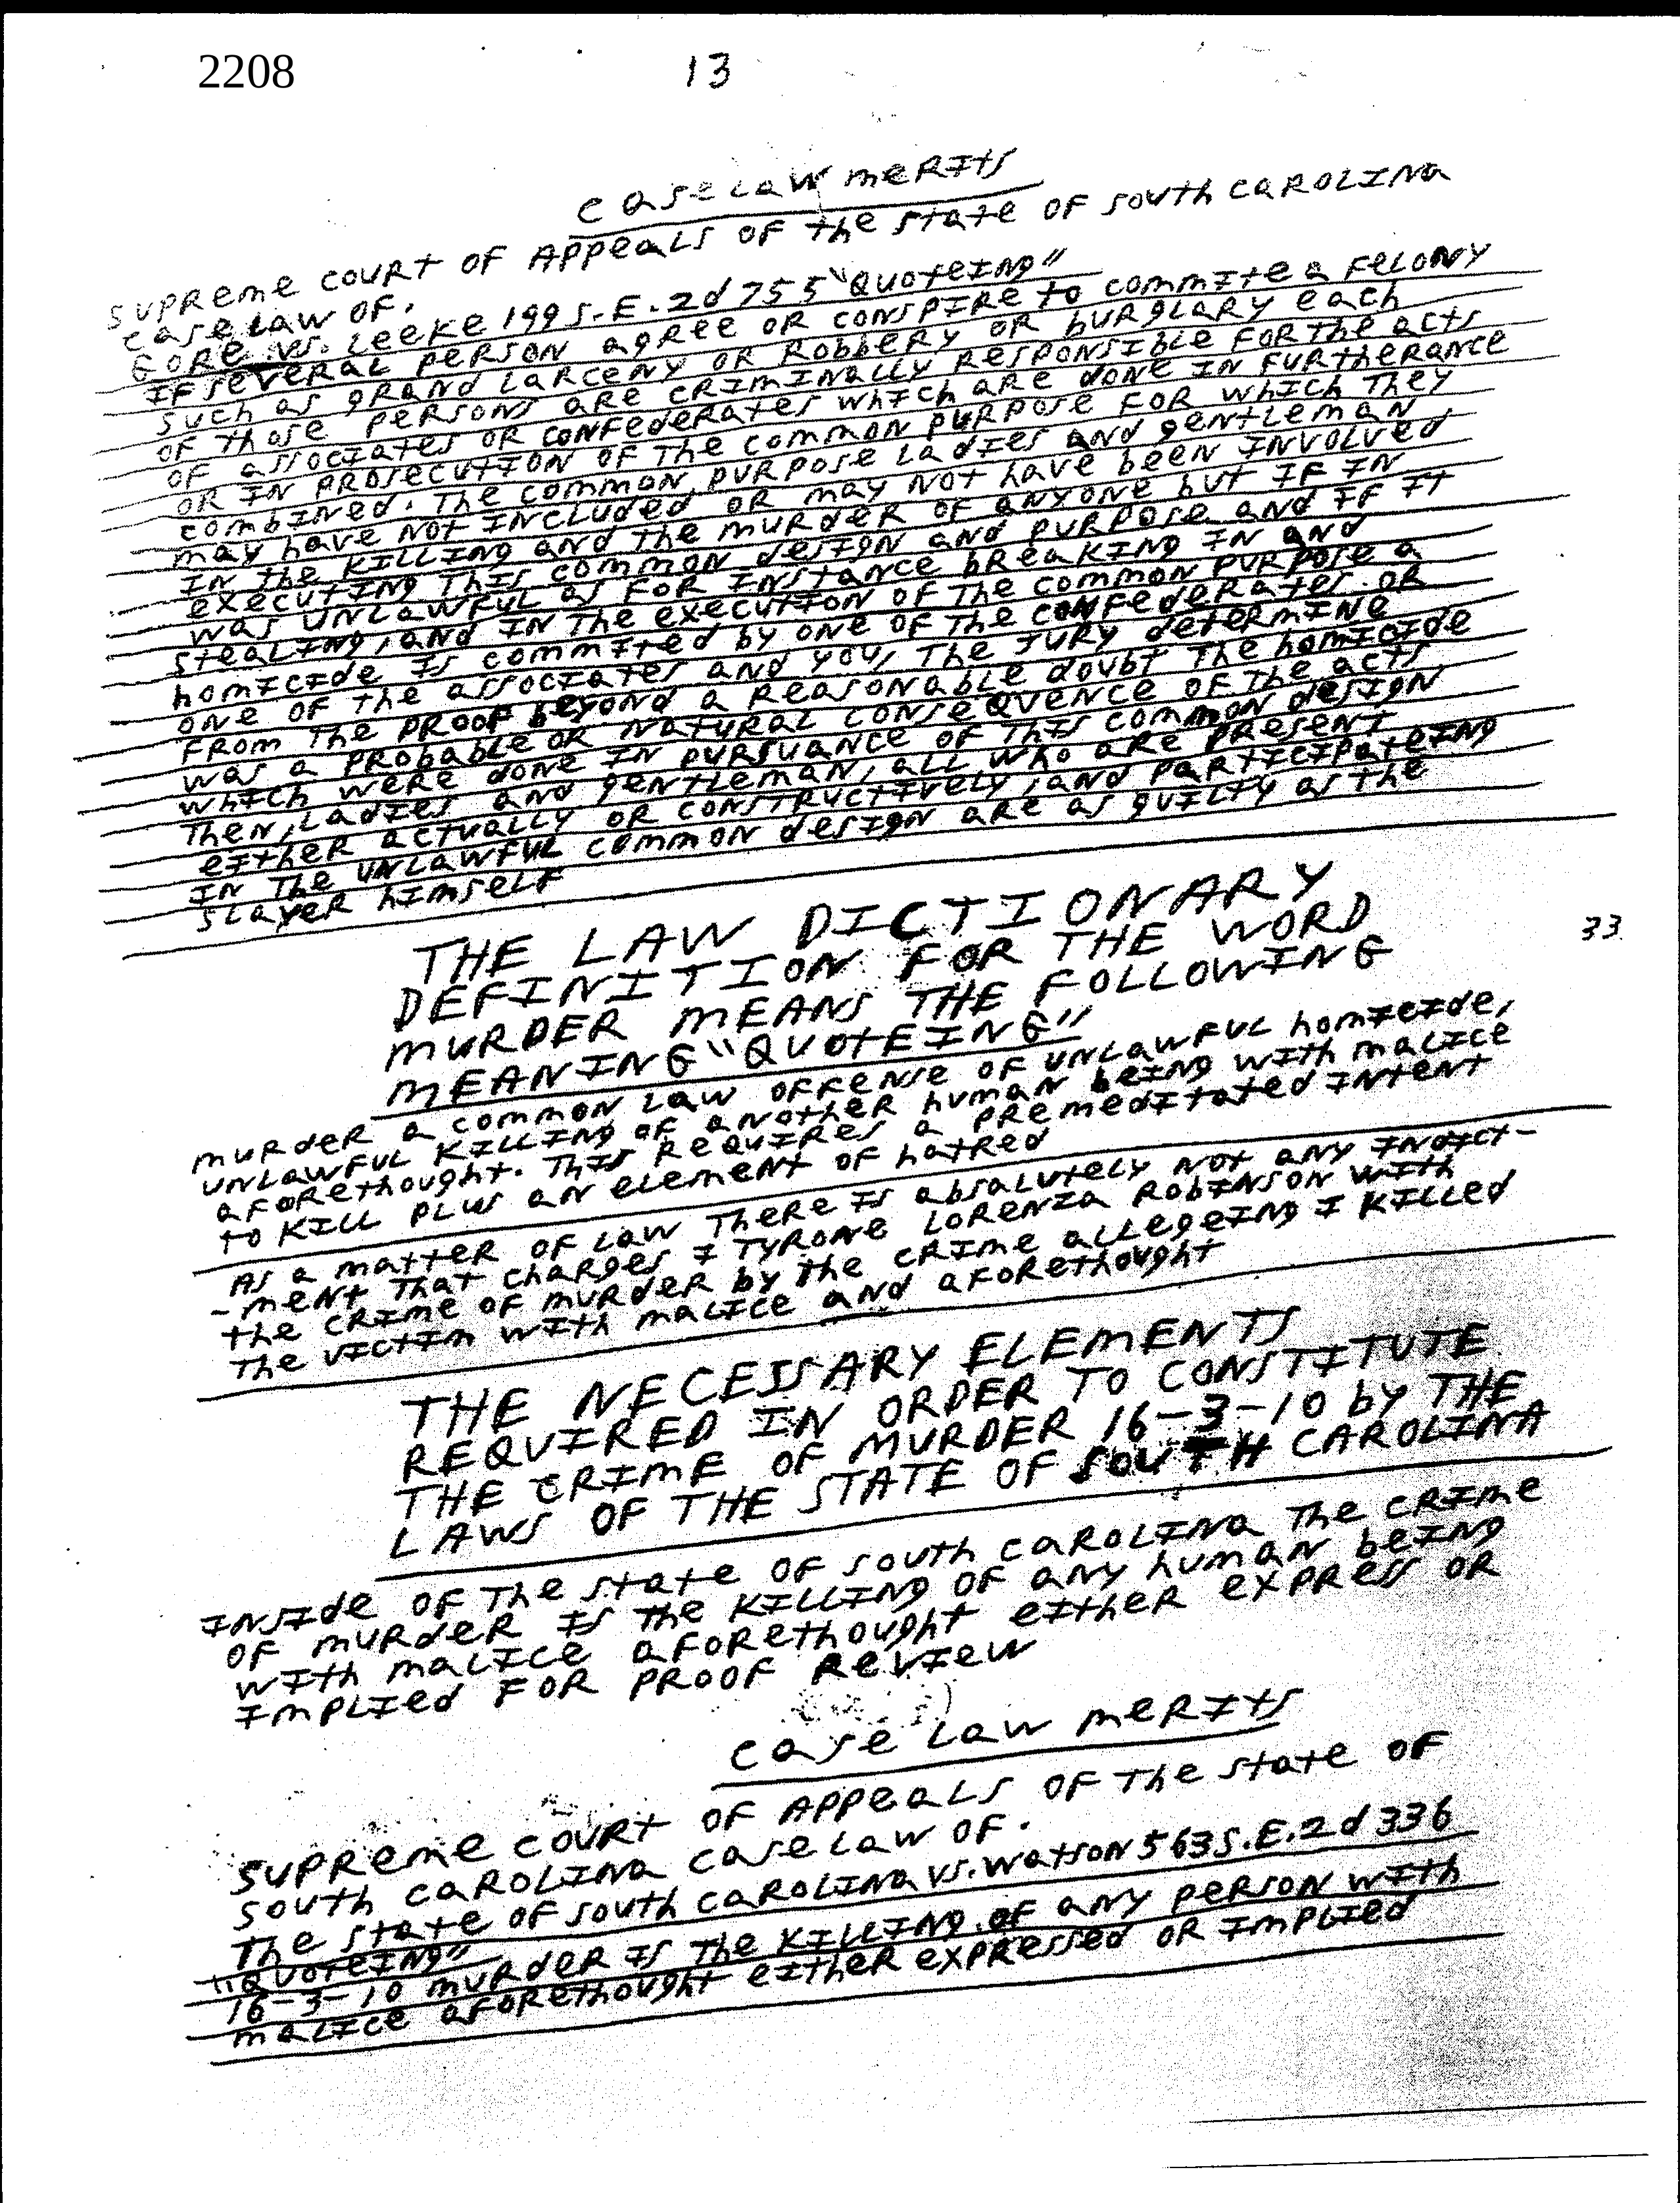 2208
13
case law merits
supreme court of appeals of the state of south carolina
case law of.
Gore vs. Leeke 199 S.E.2d 755 "Quoteing"
If several person agree or conspire to commite a felony
such as grand larceny or robbery or burglary each
of those persons are criminally responsible for the acts
of associates or confederates which are done in furtherance
or in prosecution of the common purpose for which they
combined. The common purpose ladies and gentleman
may have not included or may not have been involved
in the killing and the murder of anyone but if in
executing this common design and purpose and if it
was unlawful as for instance breaking in and
stealing, and in the execution of the common purpose a
homicide is commited by one of the confederates or
one of the associates and you, the jury determine
from the proof beyond a reasonable doubt the homicide
was a probable or natural consequence of the acts
which were done in pursuance of this common design
then, ladies and gentleman, all who are present
either actually or constructively, and participateing
in the unlawful common design are as guilty as the
slayer himself
THE LAW DICTIONARY
DEFINITION FOR THE WORD
33
MURDER MEANS THE FOLLOWING
MEANING "QUOTEING"
murder a common law offense of unlawful homicide,
unlawful killing of another human being with malice
aforethought. This requires a premeditated intent
to kill plus an element of hatred
As a matter of law there is absalutely not any indict-
-ment that charges I Tyrone Lorenza Robinson with
the crime of murder by the crime allegeing I killed
the victim with malice and aforethought
THE NECESSARY ELEMENTS
REQUIRED IN ORDER TO CONSTITUTE
THE CRIME OF MURDER 16-3-10 by THE
LAWS OF THE STATE OF SOUTH CAROLINA
inside of the state of south carolina the crime
of murder is the killing of any human being
with malice aforethought either express or
implied for proof review
case law merits
supreme court of appeals of the state of
south carolina case law of.
The state of south carolina vs. Watson 563 S.E.2d 336
"Quoteing"
16-3-10 murder is the killing of any person with
malice aforethought either expressed or implied